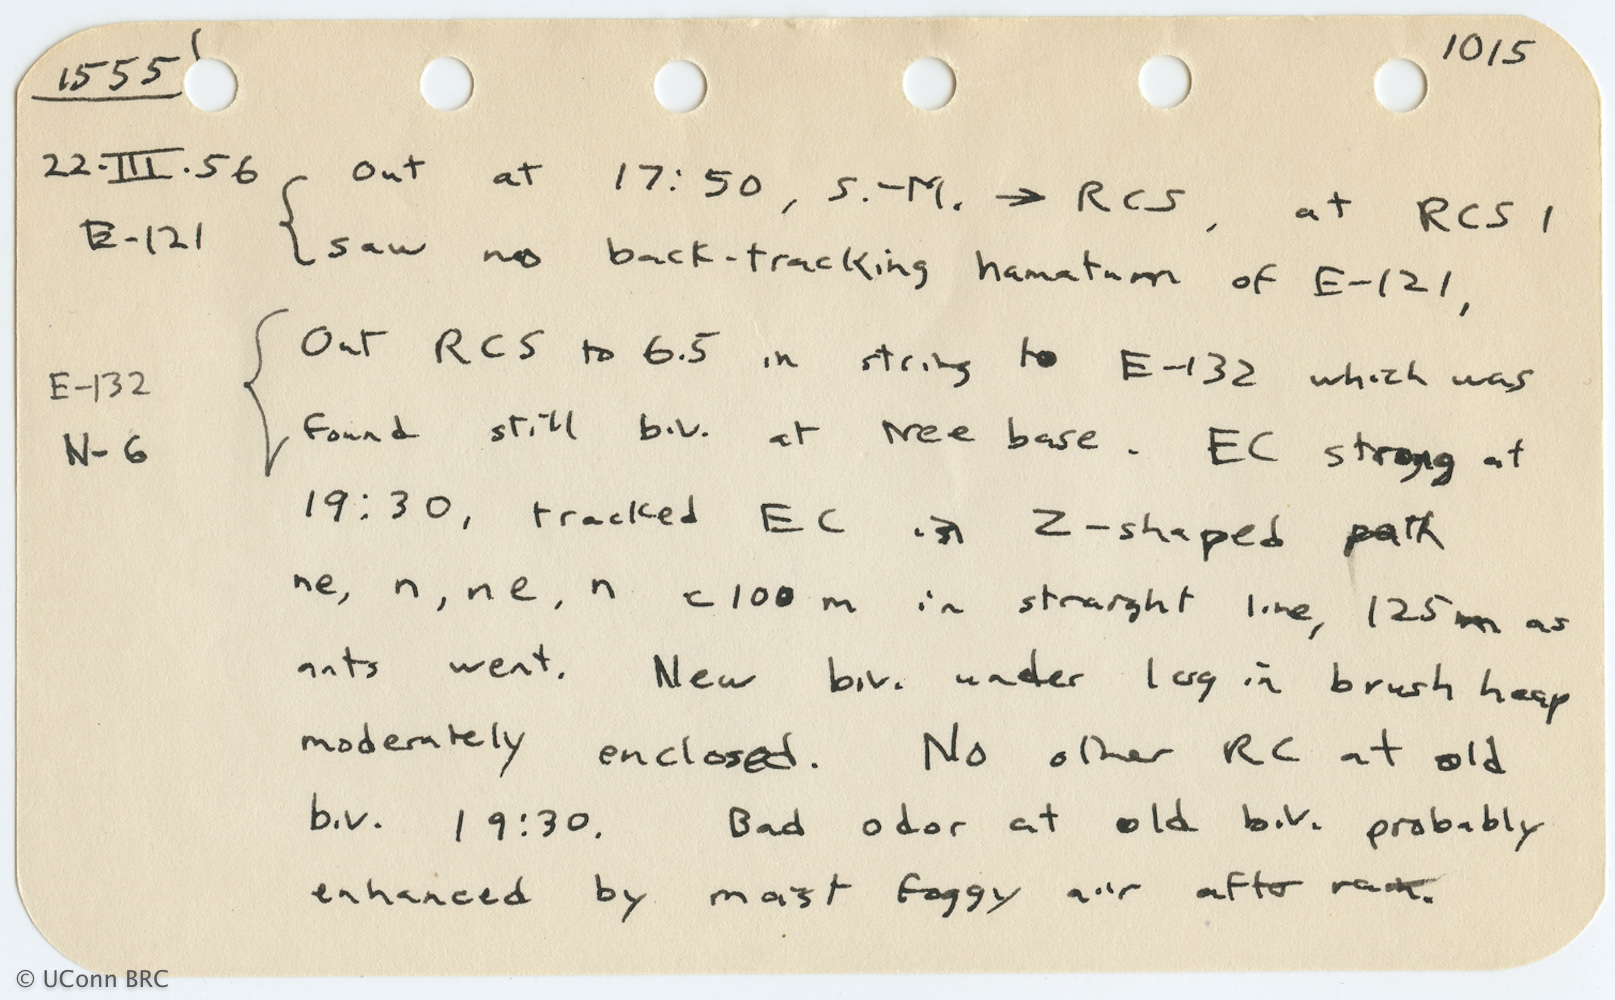 1555
1015
22·III·56 Out at 17:50, S.-M. → RCS, at RCS 1
E-121 saw no back-tracking hamatum of E-121,
Out RCS to 6.5 in string to E-132 which was
E-132
found still biv. at tree base. EC strong at
N-6
19:30, tracked EC in Z-shaped path
ne, n, ne, n c100 m in straight line, 125m as
ants went. New biv. under log in brush heap
moderately enclosed. No other RC at old
biv. 19:30. Bad odor at old biv. probably
enhanced by moist foggy air after rain.
© UConn BRC